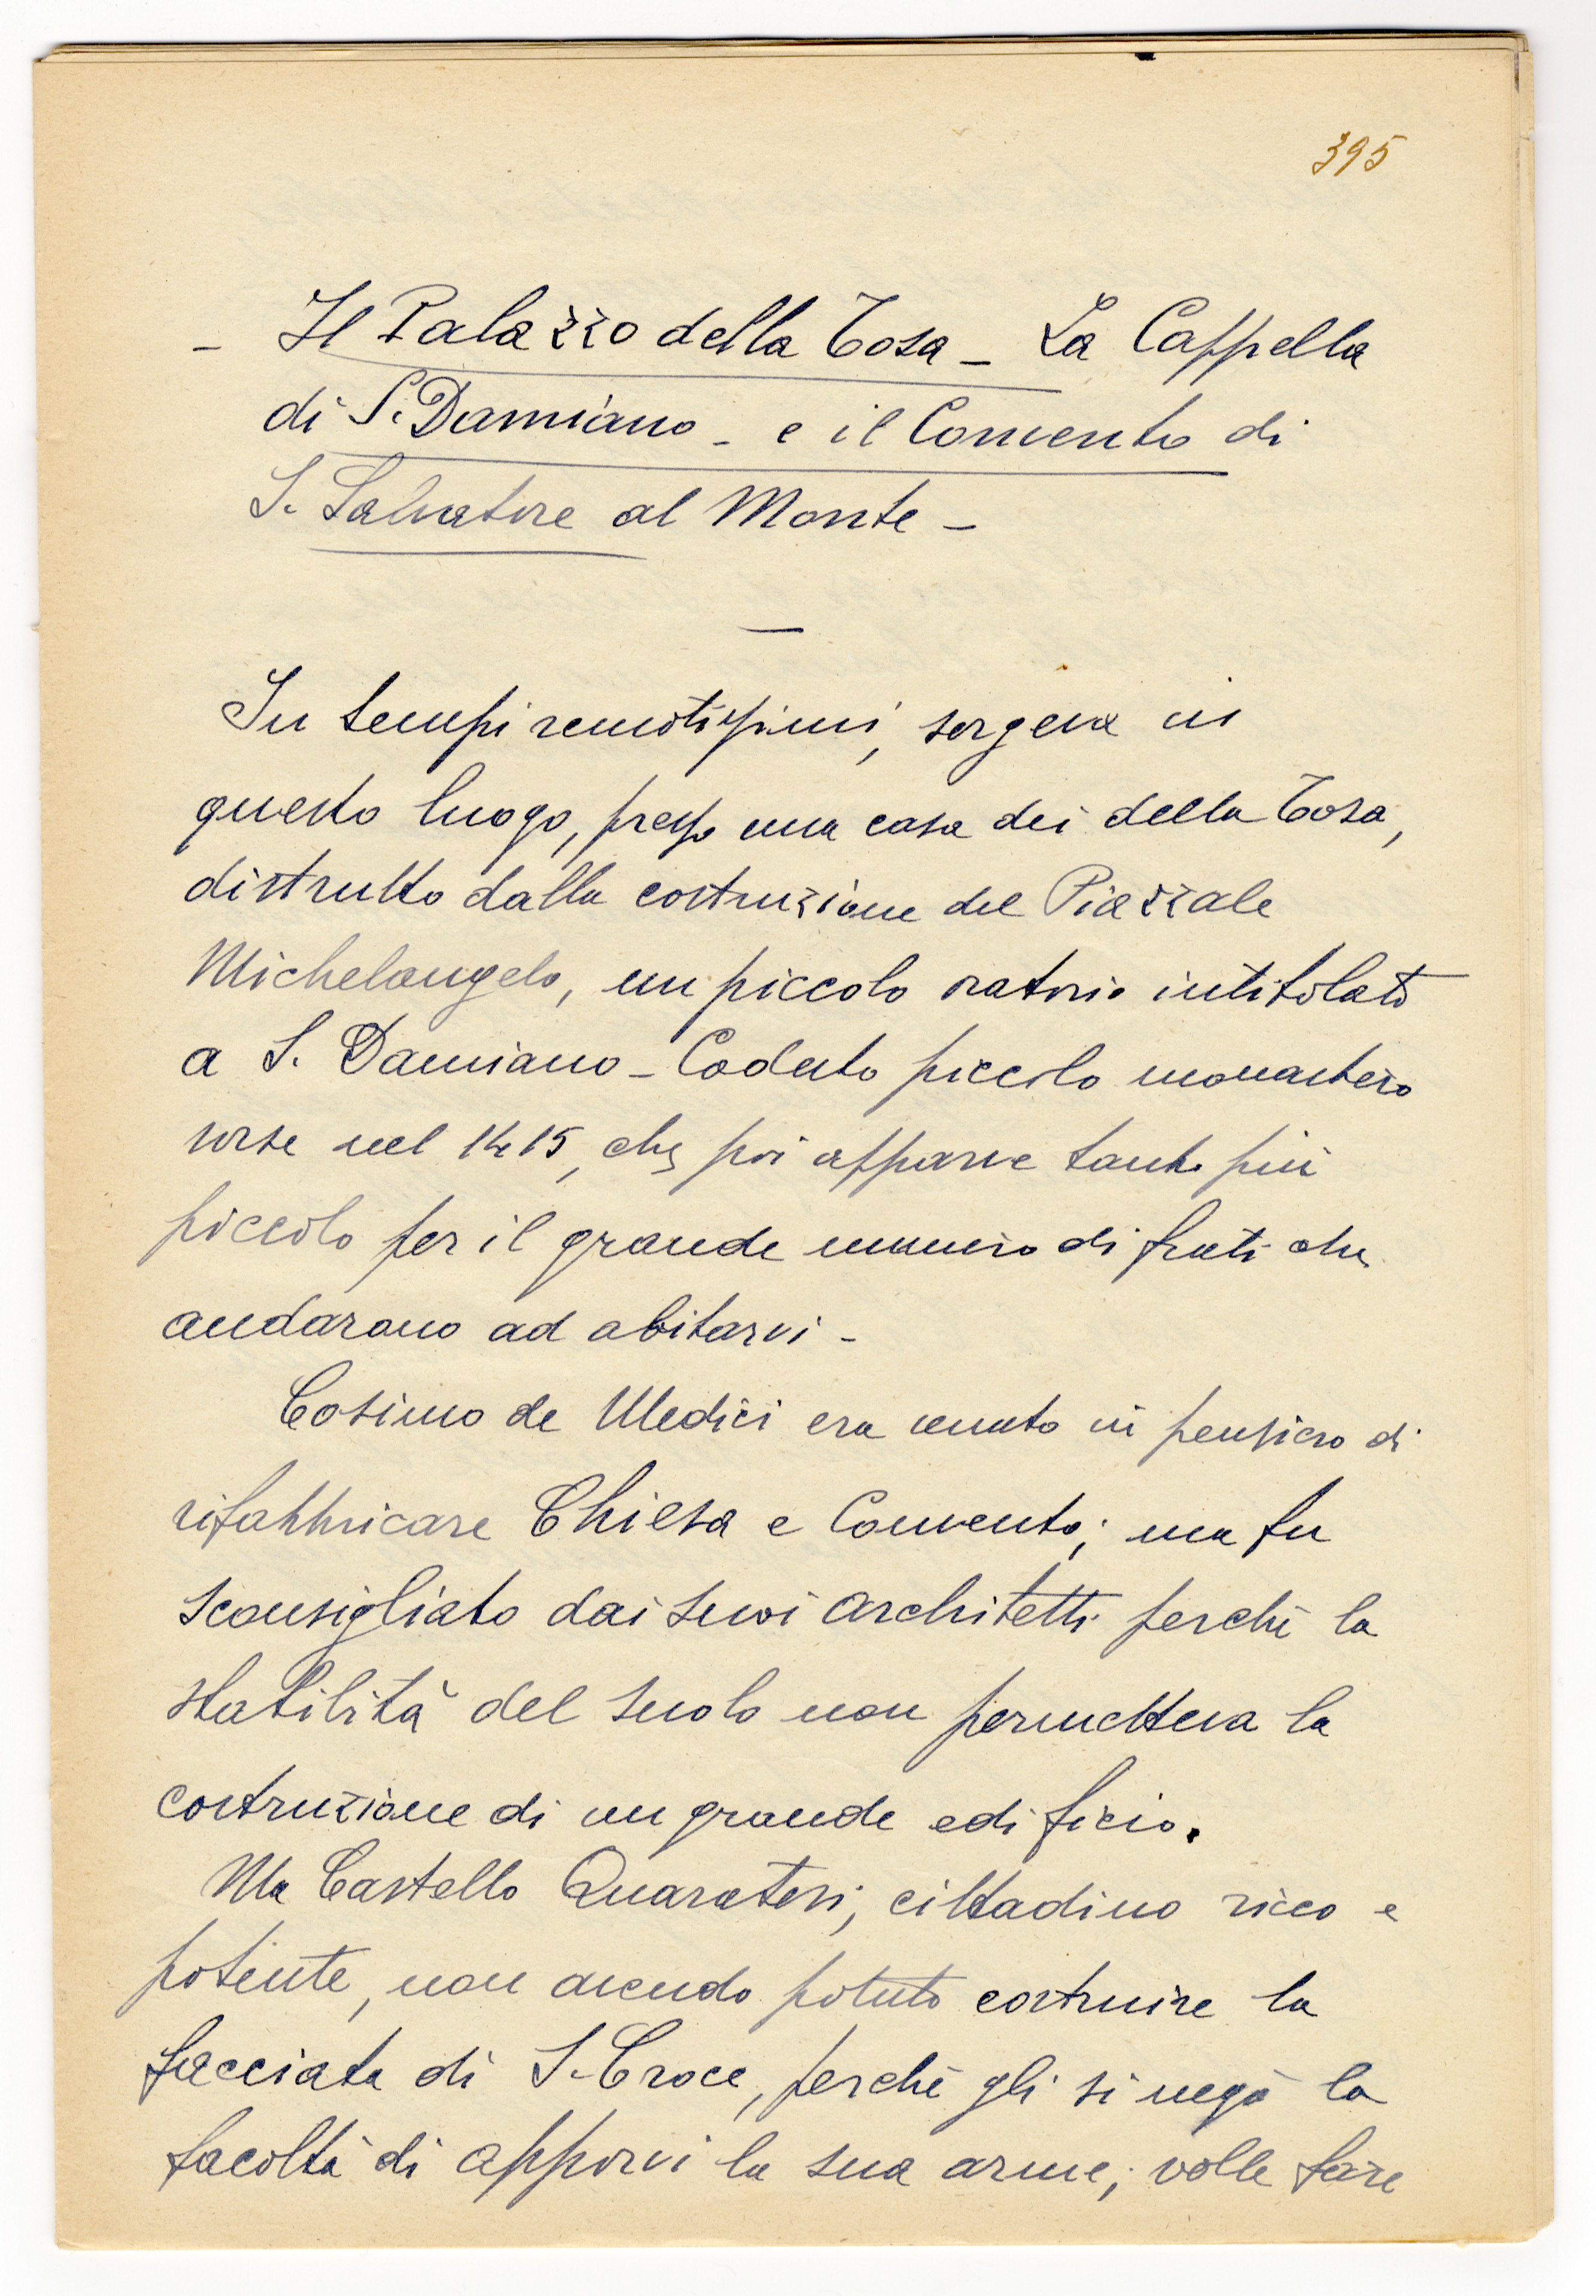 395
- Il Palazzo della Tosa - La Cappella
di S. Damiano - e il Convento di
S. Salvatore al Monte -
In tempi remotissimi, sorgeva in
questo luogo, presso una casa dei della Tosa,
distrutto dalla costruzione del Piazzale
Michelangelo, un piccolo oratorio intitolato
a S. Damiano - Codesto piccolo monastero
sorse nel 1415, che poi apparve tanto più
piccolo per il grande numero di frati che
andarono ad abitarvi -
Cosimo de Medici era venuto in pensiero di
rifabbricare Chiesa e Convento; ma fu
sconsigliato dai suoi architetti perchè la
stabilità del suolo non permetteva la
costruzione di un grande edificio.
Ma Castello Quaratesi, cittadino ricco e
potente, non avendo potuto costruire la
facciata di S. Croce, perchè gli si negò la
facoltà di apporvi la sua arme; volle fare